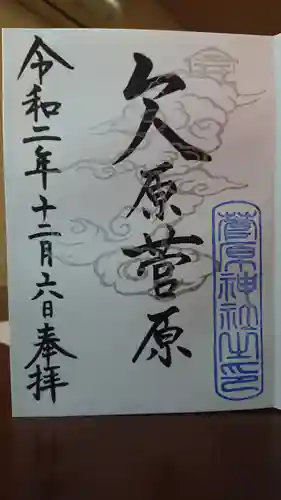 久原菅原
菅原神社之印
令和二年十二月六日奉拝